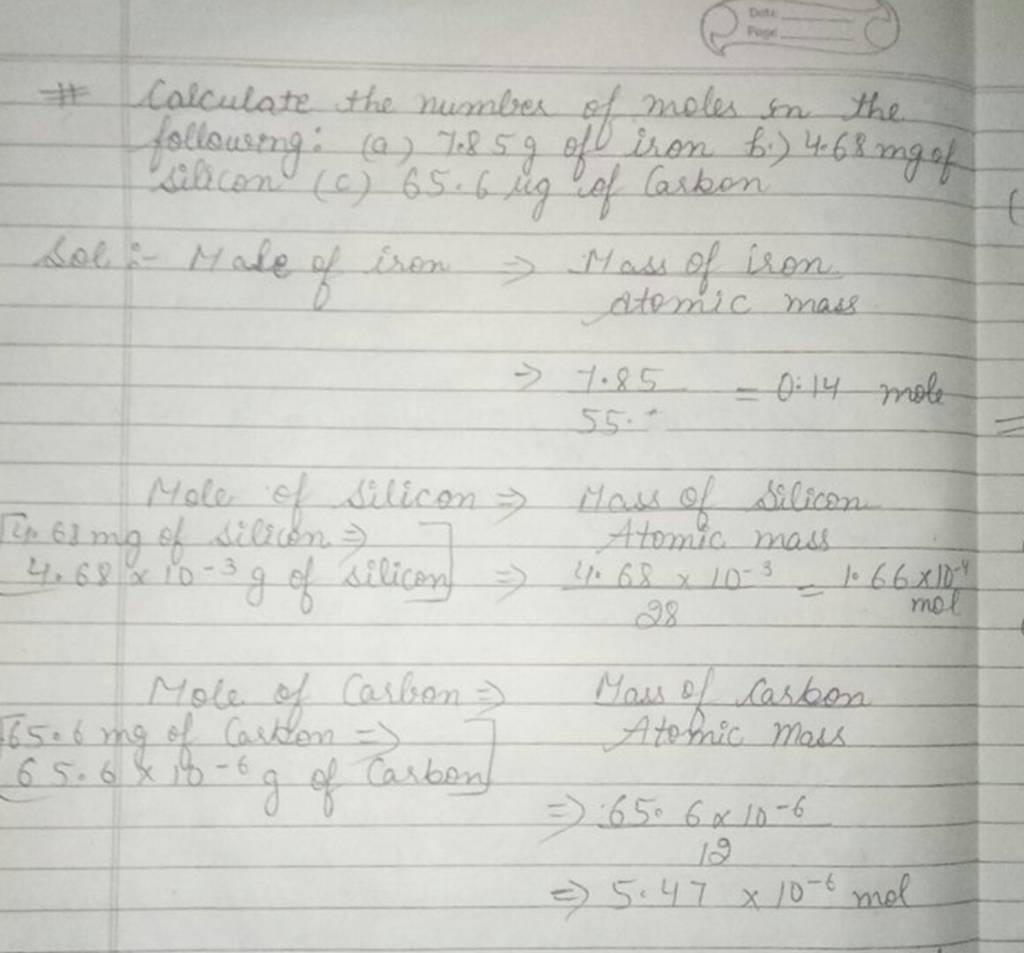 Date
Page
# Calculate the number of moles in the
following: (a) 7.85g of iron b.) 4.68 mg of
Silicon (c) 65.6 µg of Carbon
Sol :- Mole of iron ⇒ Mass of iron
Atomic mass
⇒ 7.85 = 0.14 mole
55.
Mole of Silicon ⇒ Mass of Silicon
4.68 mg of silicon ⇒ Atomic mass
4.68 × 10-3 g of silicon ⇒ 4.68 × 10-3 = 1.66×10-4
28 mol
Mole of Carbon ⇒ Mass of Carbon
65.6 mg of Carbon ⇒ Atomic mass
65.6 × 10-6 g of Carbon
⇒ 65.6 × 10-6
12
⇒ 5.47 × 10-6 mol